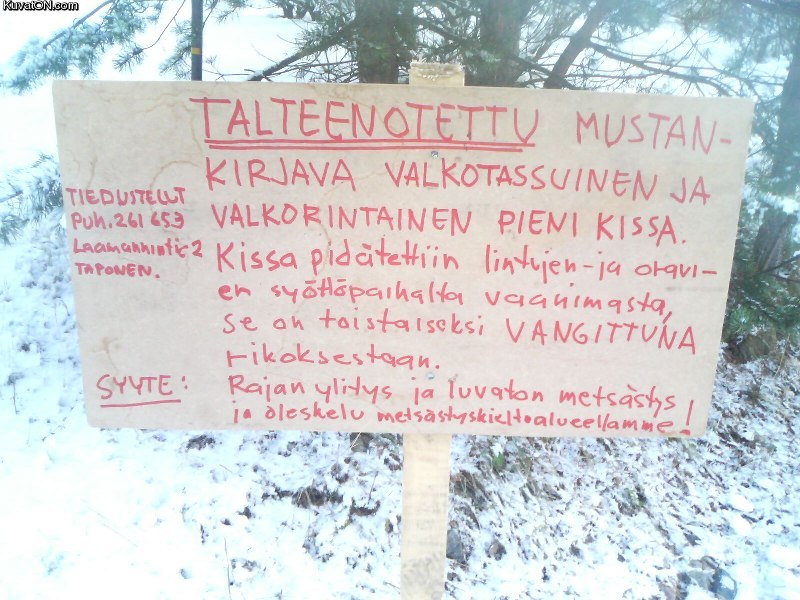 KuvatON.com
TALTEENOTETTU MUSTAN-
KIRJAVA VALKOTASSUINEN JA
VALKORINTAINEN PIENI KISSA.
Kissa pidätettiin lintujen- ja oravi-
en syöttöpaikalta vaanimasta,
se on toistaiseksi VANGITTUNA
rikoksestaan.
SYYTE: Rajan ylitys ja luvaton metsästys
ja oleskelu metsästyskieltoalueellamme!
TIEDUSTELUT
PUH. 261 653
Laamannintie 2
TAPONEN.